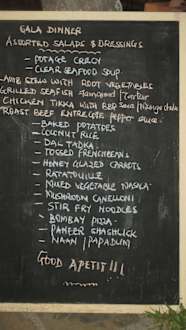 GALA DINNER
ASSORTED SALADS & DRESSINGS
- POTAGE CRECY
- CLEAR SEAFOOD SOUP
LAMB STEW WITH ROOT VEGETABLES
GRILLED SEAFISH Tartar
CHICKEN TIKKA WITH BBQ Sauce /
ROAST BEEF ENTRECOTE PEPPER
- BAKED POTATOES
- COCONUT RICE
- DAL TADKA
- TOSSED FRENCHBEANS
- HONEY GLAZED CARROTS
- RATATOUILLE
- MIXED VEGETABLE MASALA
- MUSHROOM CANELLONI
- STIR FRY NOODLES
- BOMBAY PIZZA
- PANEER SHASHLICK
- NAAN / PAPADUM
GOOD APETIT!!!